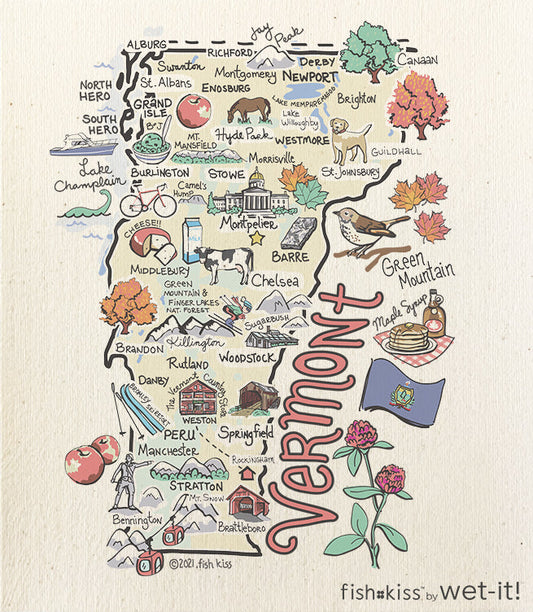 Jay Peak
ALBURG
RICHFORD
Swanton
DERBY
CANAAN
Montgomery
NEWPORT
St. Albans
ENOSBURG
NORTH HERO
LAKE MEMPHREMAGOG
Brighton
GRAND ISLE
Lake Willoughby
SOUTH HERO
B-J
Hyde Park
WESTMORE
MT. MANSFIELD
GUILDHALL
Morrisville
Lake Champlain
BURLINGTON
STOWE
St. JOHNSBURY
Camel's Hump
Montpelier
CHEESE!!
BARRE
MIDDLEBURY
Chelsea
Green Mountain
GREEN MOUNTAIN & FINGER LAKES NAT. FOREST
Sugarbush
Maple Syrup
Killington
BRANDON
WOODSTOCK
Rutland
VERMONT
DANBY
The Vermont Country Store
BROMLEY SKI RESORT
WESTON
PERU
Springfield
Manchester
ROCKINGHAM
STRATTON
MT. SNOW
Bennington
Brattleboro
©2021, fish kiss
fish kiss™ by wet-it!